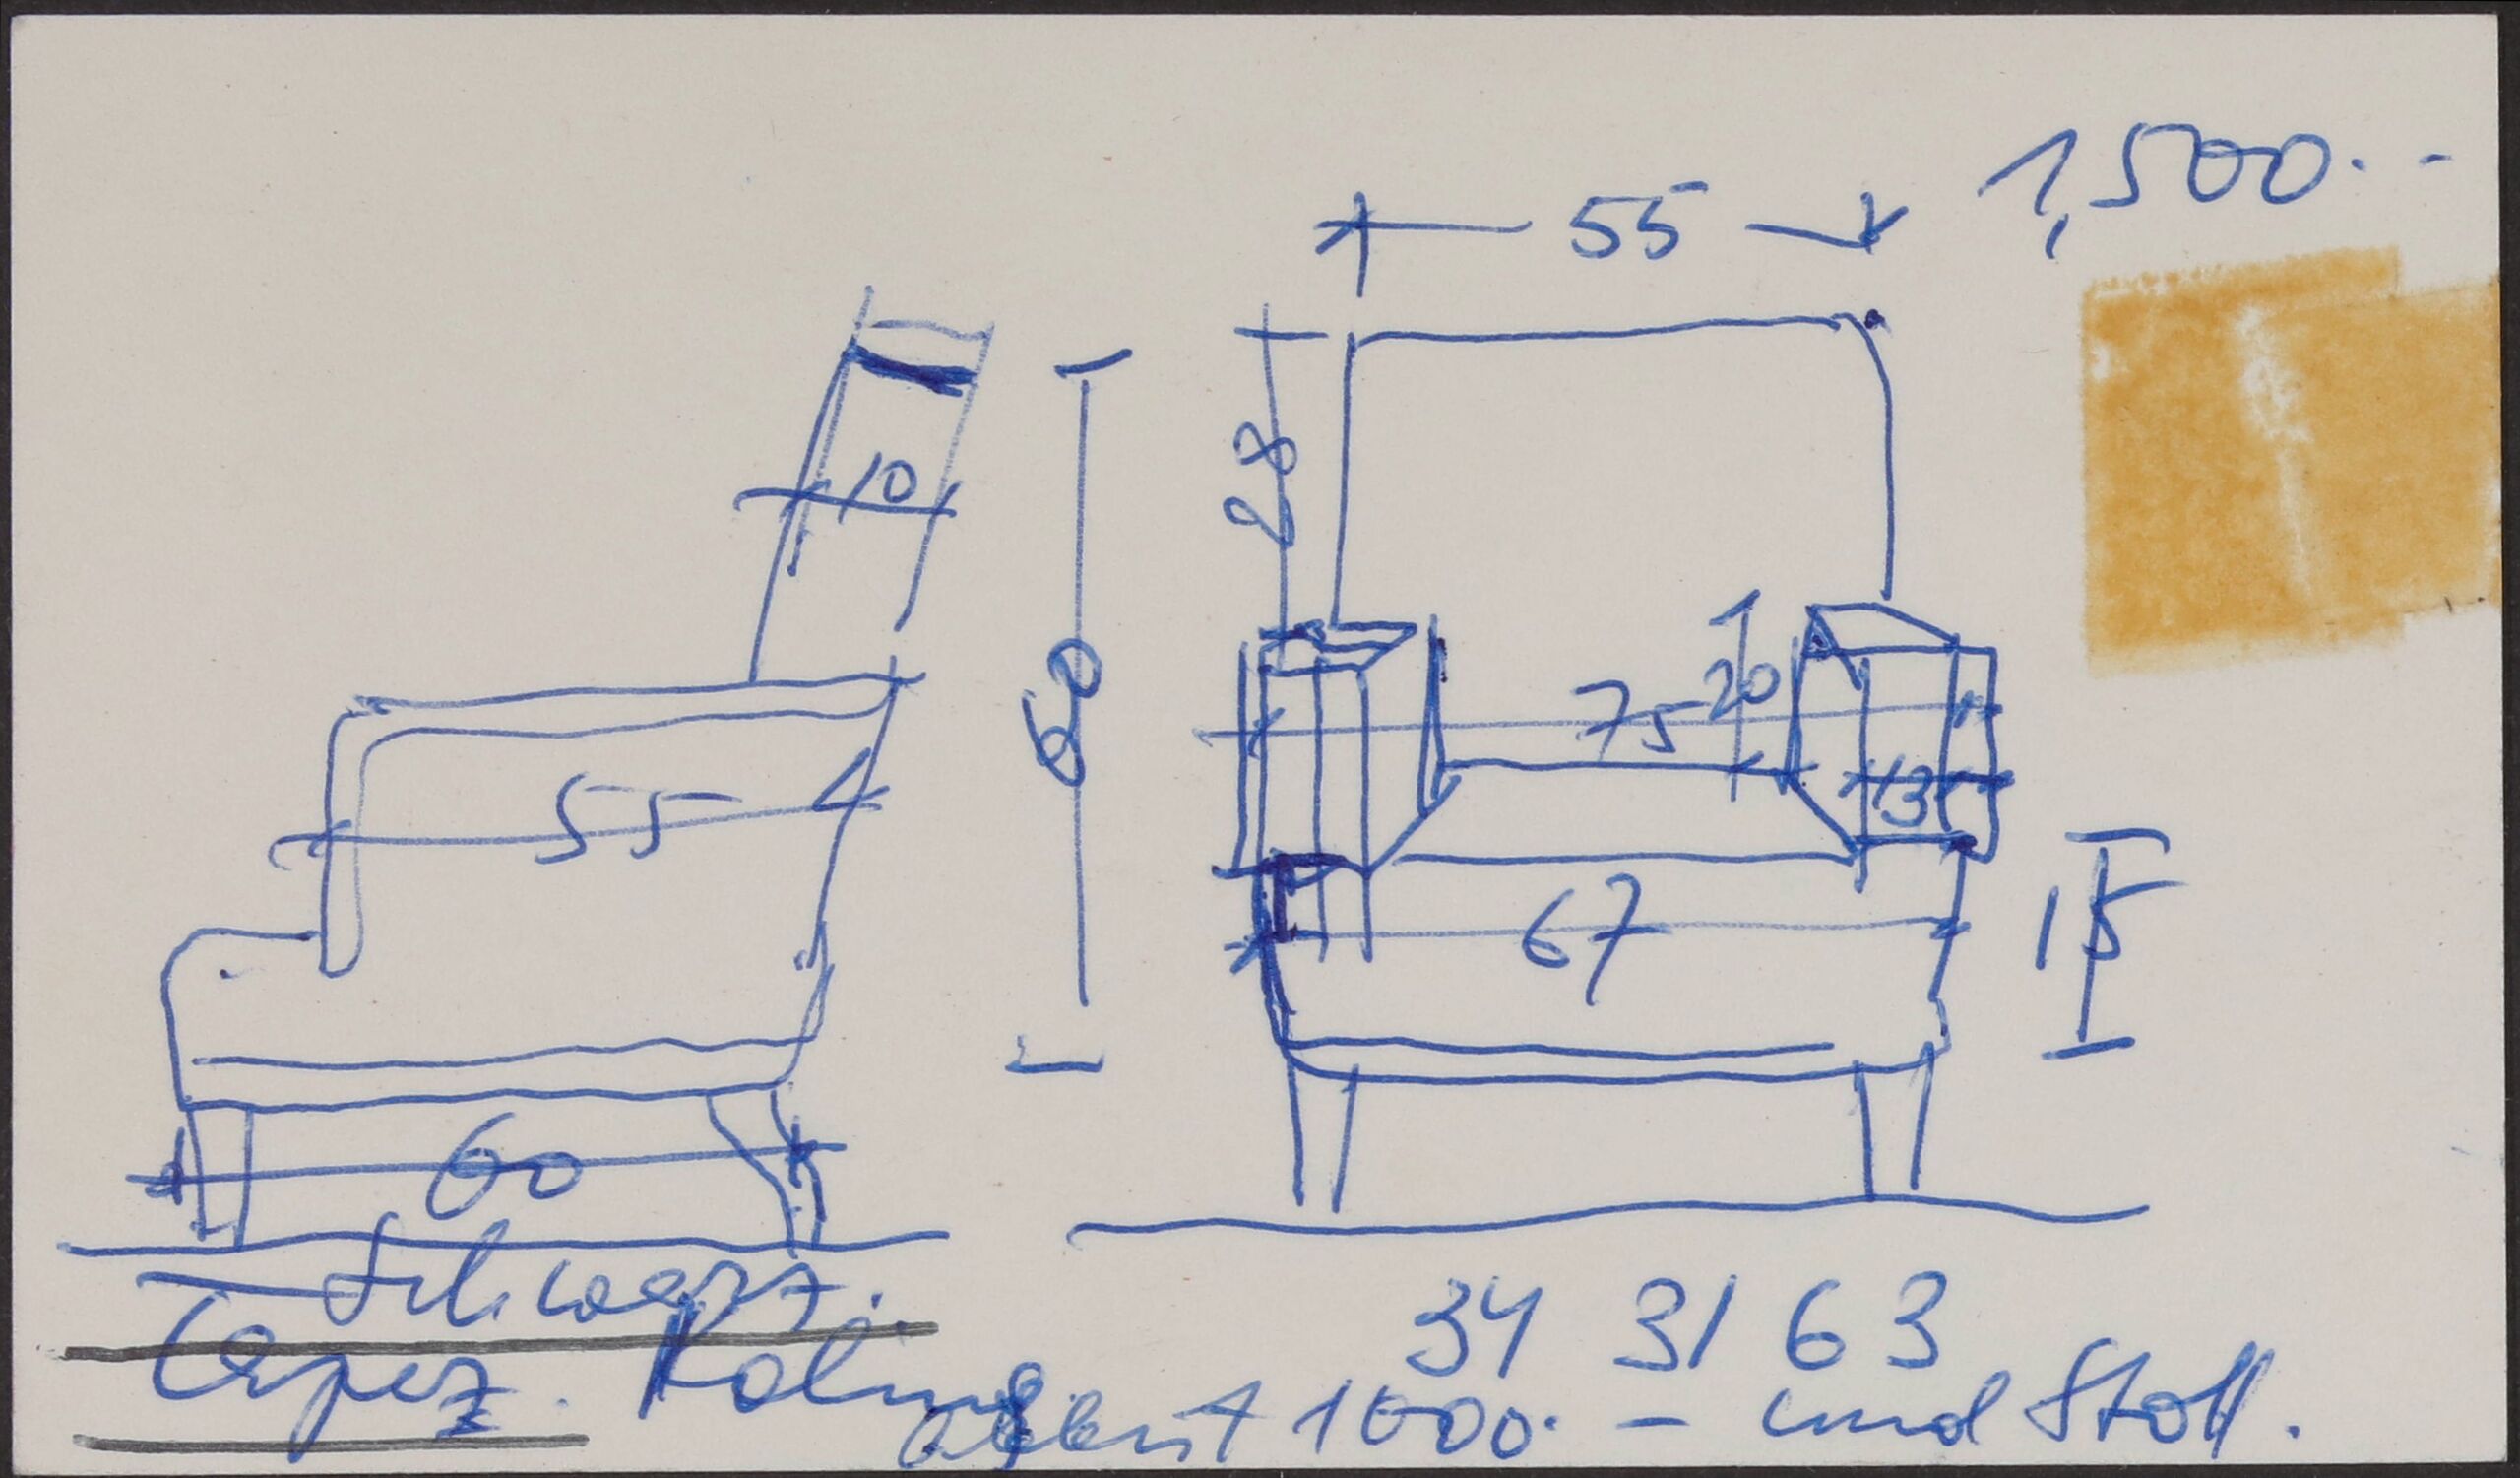 1,500.-
55
28
10
60
75
20
13
55
67
15
60
Schwarz.
34 31 63
Tapez.
1000.- und Stoff.